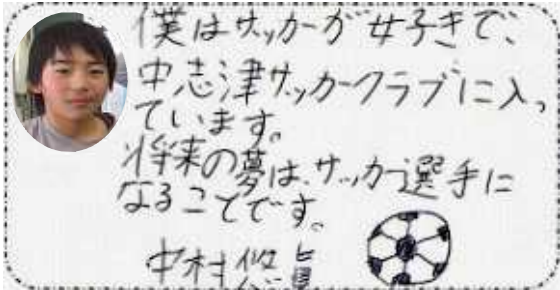 僕はサッカーが好きで、
中志津サッカークラブに入っ
ています。
将来の夢は、サッカー選手に
なることです。
中村悠真